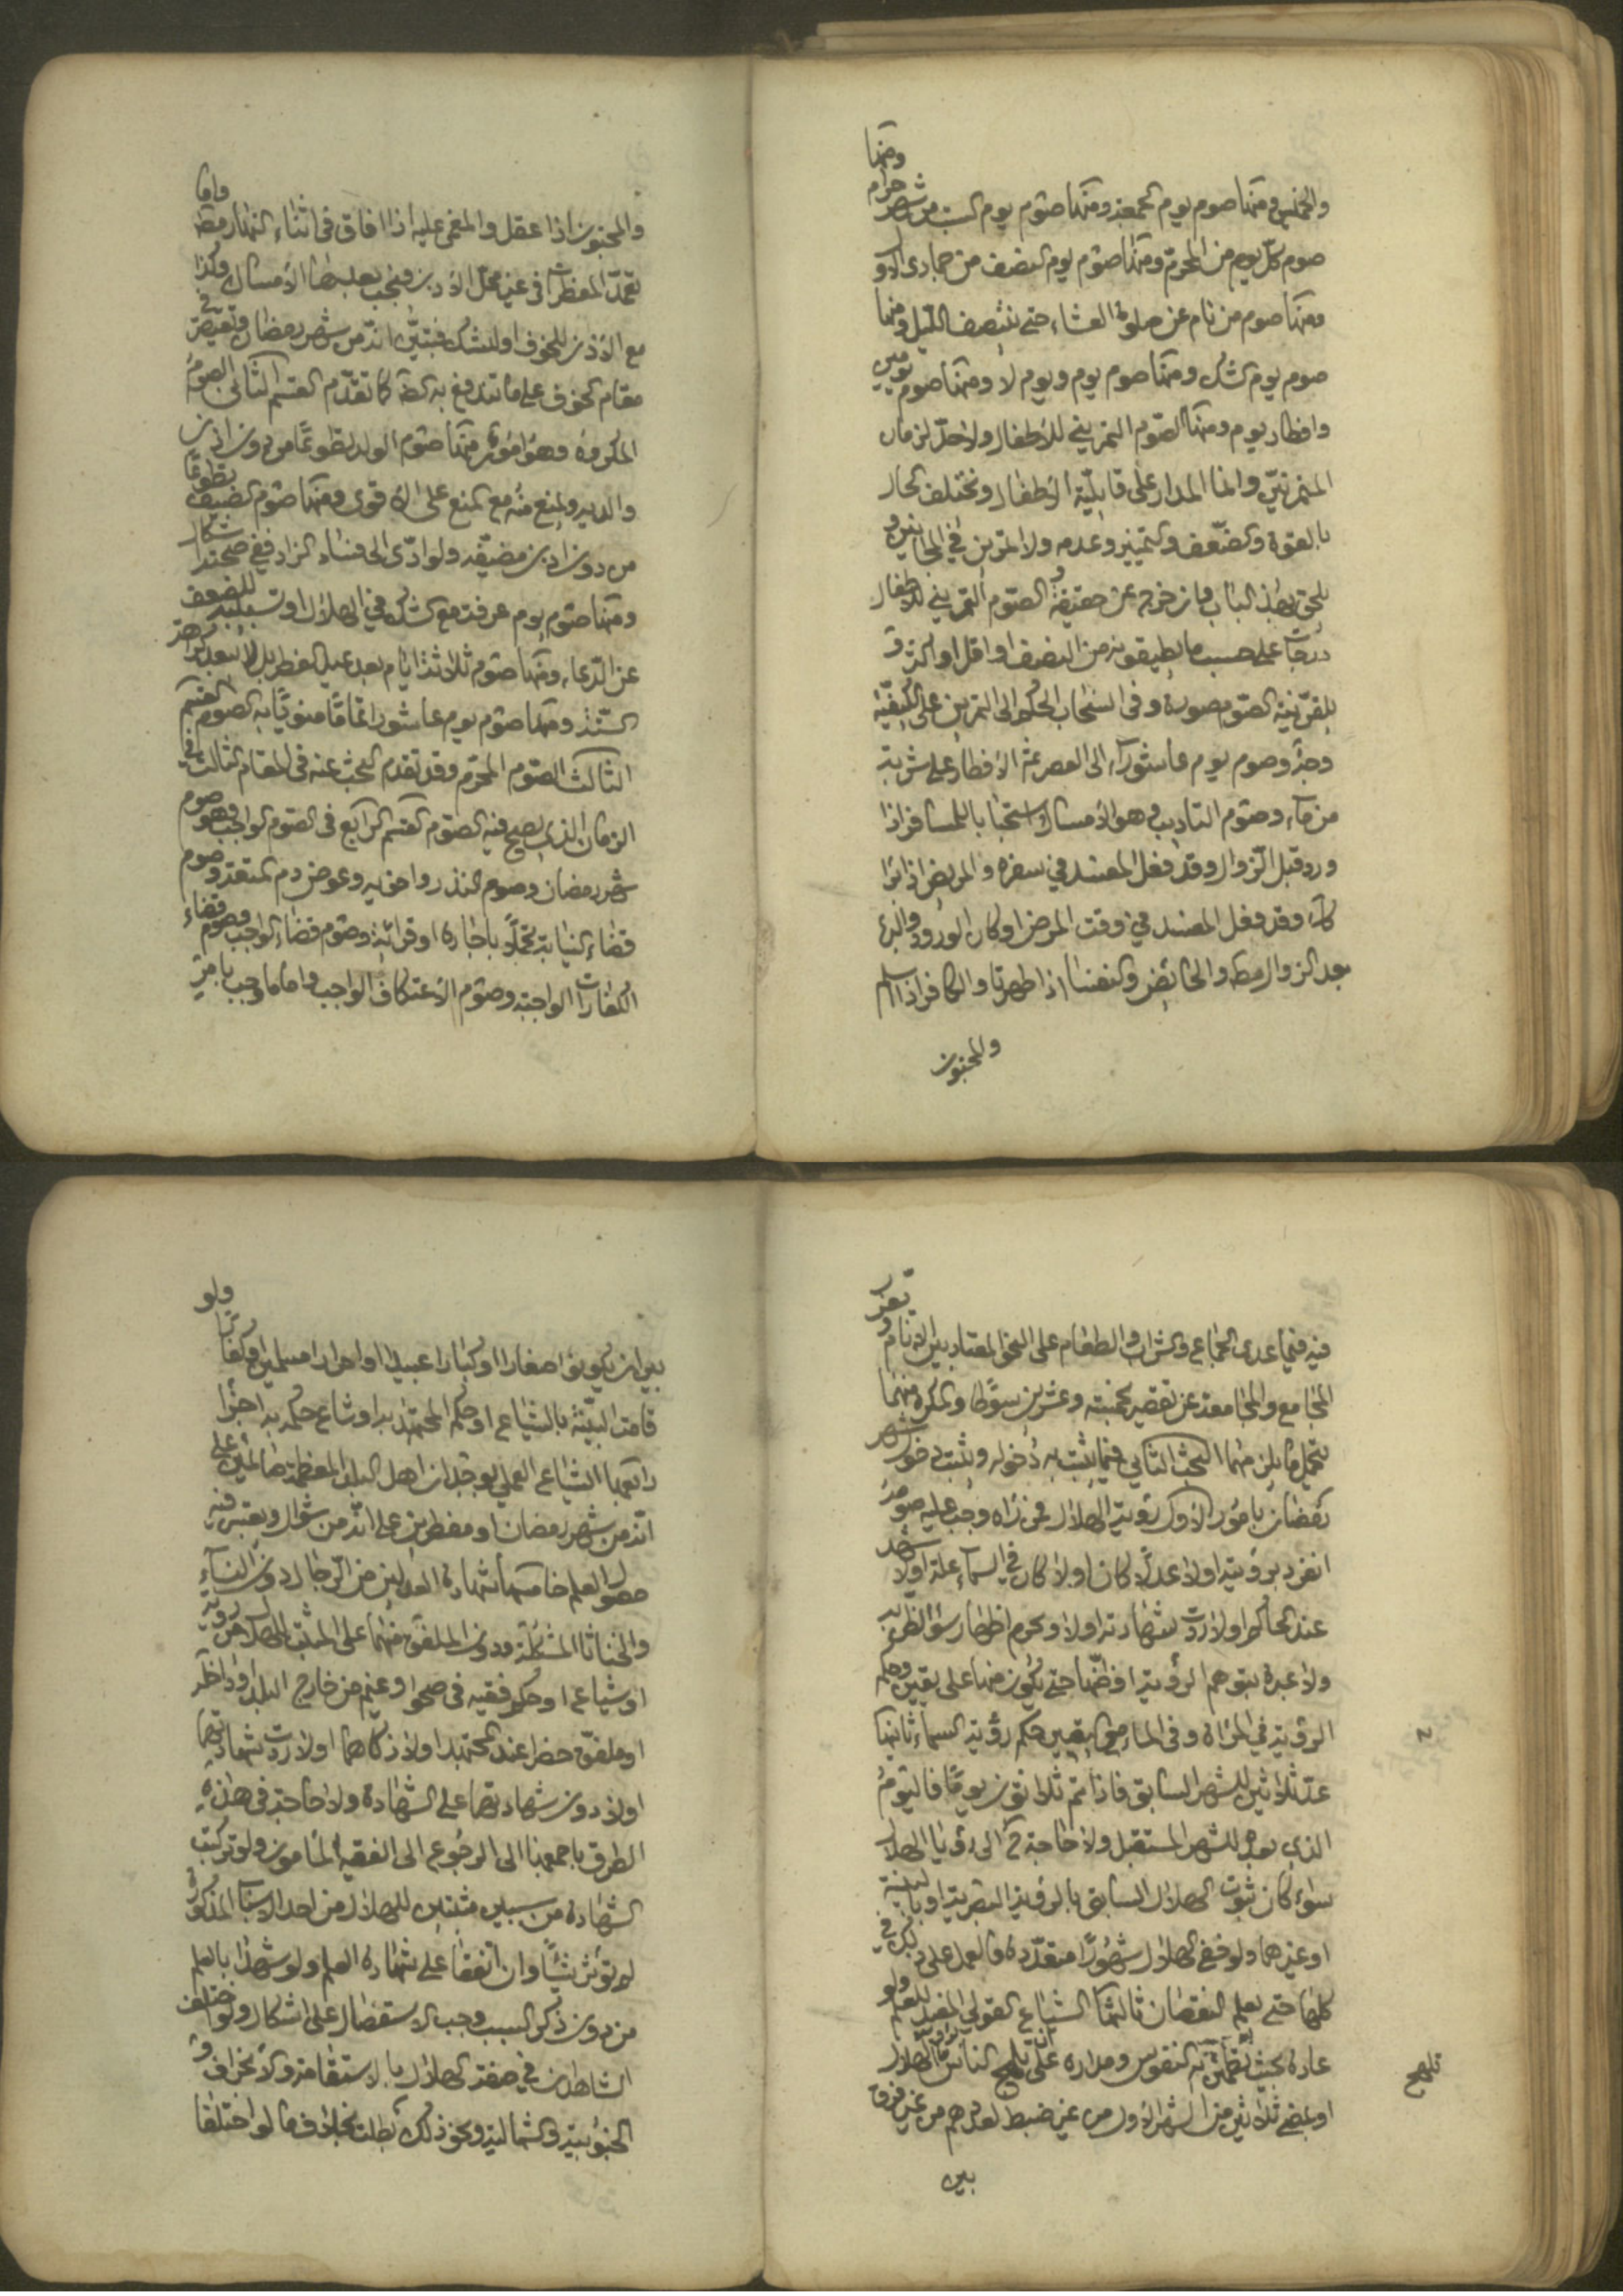 والخميس ومنها صوم يوم الجمعة ومنها صوم يوم السبت من شهر حرام ومنها
صوم كل يوم من المحرم ومنها صوم يوم النصف من جمادى الاولى
ومنها صوم من نام عن صلوة العشاء حتى ينتصف الليل ومنها
صوم يوم الشك ومنها صوم يوم ويوم لا ومنها صوم يومين
وافطار يوم ومنها الصوم التمريني للأطفال ولا حد لزمان
التمرين وانما المدار على قابلية الأطفال وتختلف الحال
بالقوة والضعف والتمييز وعدمه ولا تمرين في المجانين و
يلحق بهذا الباب وان خرج عن حقيقة الصوم التمريني للأطفال
درجات على حسب ما يطيقونه من النصف او اقل او اكثر و
للفرنية الصوم صورة وفي استحباب الحكم الى التمرين على الكيفية
وجه وصوم يوم عاشوراء الى العصر ثم الافطار على شربة
من ماء وصوم التاديب وهو الامساك استحبابا للمسافر اذا
ورد قبل الزوال وقد فعل المفسد في سفره والمريض اذا برء
كذلك وقد فعل المفسد في وقت المرض او كان الورود والبرء
بعد الزوال مطلقا والحائض والنفساء اذا طهرتا والكافر اذا اسلم
والمجنون
والمجنون اذا عقل والمغمى عليه اذا افاق في اثناء النهار مطلقا واما
تعمد المفطرات في غير محل الاذن فيجب بعدها الامساك وكذا
مع الاذن للخوف او للشك فتبين انه من شهر رمضان ويقتصر في
مقام الخوف على ما تندفع به الضرورة كما تقدم القسم الثاني الصوم
المكروه وهو امور منها صوم الولد تطوعا من دون اذن
والديه والمنع منه مع المنع على الاقوى ومنها صوم الضيف تطوعا
من دون اذن مضيفه ولو ادى الى فساد الزاد ففي صحته اشكال
ومنها صوم يوم عرفة مع الشك في الهلال او تسبيبه للضعف
عن الدعاء ومنها صوم ثلاثة ايام بعد عيد الفطر
السنة ومنها صوم يوم عاشورا تماما منويا به الصوم القسم
الثالث الصوم المحرم وقد تقدم البحث عنه في المقام الثالث في
الزمان الذي يصح فيه الصوم القسم الرابع في الصوم الواجب وهو صوم
شهر رمضان وصوم النذر واخويه وعوض دم المتعة وصوم
قضاء النيابة تحملا باجارة او قرابة وصوم قضاء الواجب وصوم قضاء
الكفارات الواجبة وصوم الاعتكاف الواجب واما ما وجب بامر
فيه فيما عدى الجماع والشراب والطعام على النحو المعتاد بين الانام و تعزير
المجامع والمجامعة عن تقصير بخمسة وعشرين سوطا والمكره منهما
يتحمل ما يلزمهما البحث الثاني فيما يثبت به دخوله ويثبت دخول شهر
رمضان بامور الاول رؤية الهلال فمن رآه وجب عليه صومه
انفرد برؤيته اولا عدلا كان اولا كان في السماء علة اولا شهد
عند الحاكم اولا ردت شهادته اولا ويحرم اظهار سوء الظن به
ولا عبرة بتوهم الرؤية او ظنها حتى يكون منها على يقين وحكم
الرؤية في المراة وفي الماء مع اليقين حكم رؤية السماء ثانيها
عد ثلاثين للشهر السابق فاذا تم ثلاثون يوما فاليوم
الذي بعده للشهر المستقبل ولا حاجة ح الى رؤيا الهلال
سواء كان ثبوت الهلال السابق بالرؤية البصرية او بالبينة
او غيرهما ولو خفي الهلال شهورا متعددة فالعمل على ذلك في
كلها حتى يعلم النقصان ثالثها الشياع القولي المفيد للعلم ولو
عادة بحيث تطمئن به النفوس ومداره على ان يلهج الناس برؤية الهلال
او بمضي ثلاثين من الشهر الاول من غير ضبط لعددهم من غير فرق
تلهج
بين
بين ان يكونوا صغارا او كبارا عبيدا او احرارا مسلمين او كفارا ولو
قامت البينة بالشياع او حكم المجتهد به او شاع حكمه به اجزأ
رابعها الشياع العملي بوجدان اهل البلد المعظم صائمين على
انه من شهر رمضان او مفطرين على انه من شوال ويعتبر فيه
حصول العلم خامسها شهادة العدلين من الرجال دون النساء
والخناثا المشكلة ودون الملفق منهما على المثبت للهلال من رؤية
او شياع او حكم فقيه في صحو او غيم من خارج البلد او داخله
او ملفق حضرا عند المجتهد اولا ذكاهما اولا ردت شهادتهما
اولا دون شهادتهما على الشهادة ولا حاجة في هذه
الطرق باجمعها الى الرجوع الى الفقيه المأمون ولو تركبت
الشهادة من سببين مثبتين للهلال من احد الاسباب المذكورة
لم تؤثر شيئا وان اتفقا على شهادة العلم ولو شهدا بالعلم
من دون ذكر السبب وجب الاستفصال على اشكال ولو اختلف
الشاهدان في صفة الهلال بالاستقامة والانحراف و
الجنوبية والشمالية ونحو ذلك بطلت بخلاف ما لو اختلفا